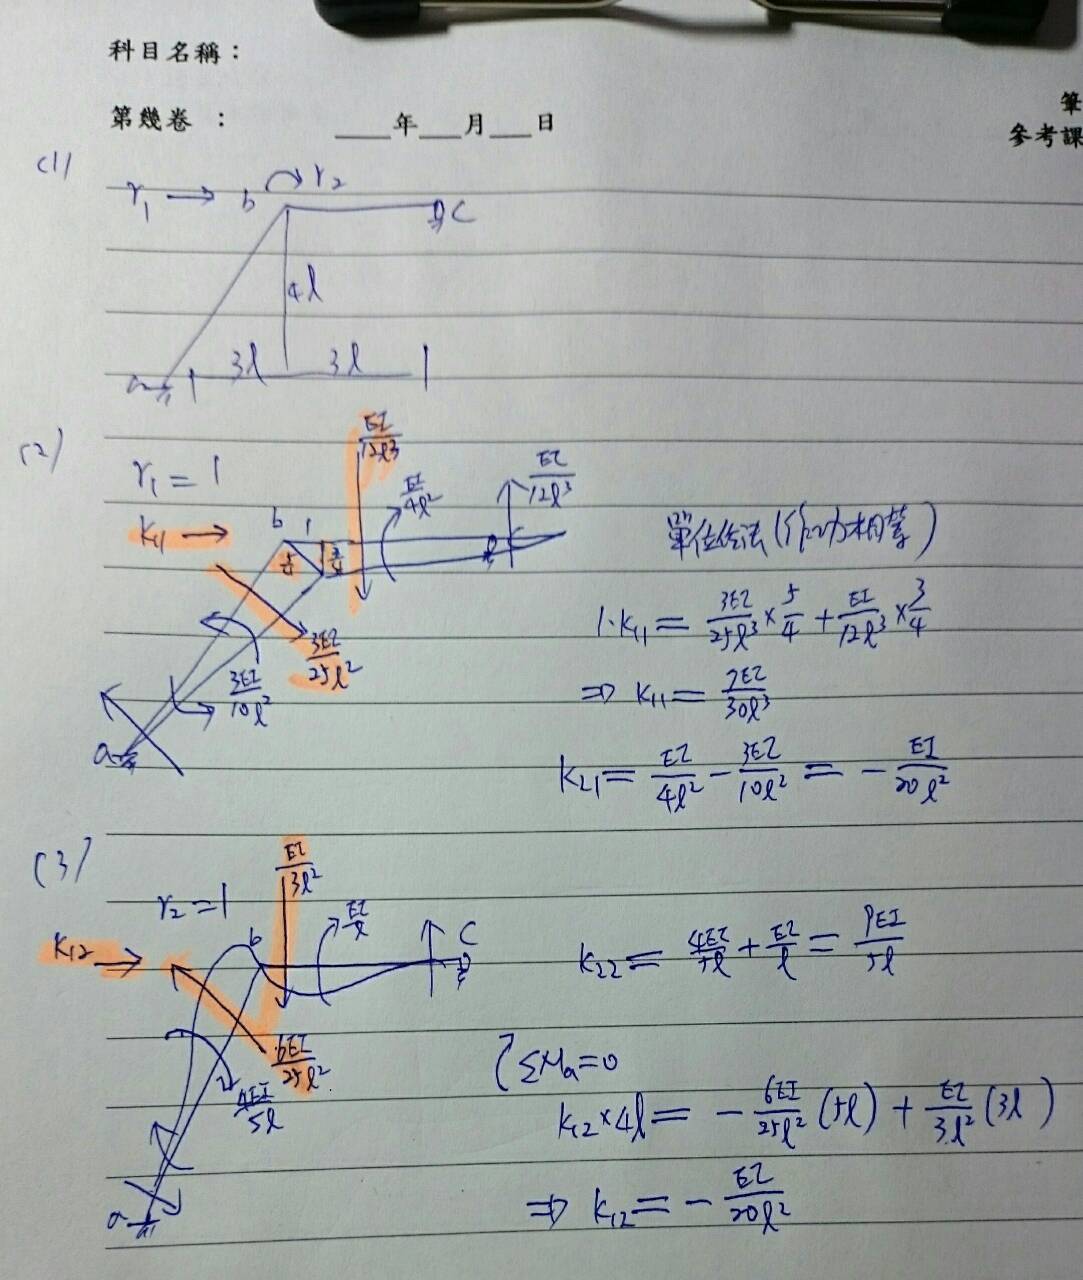 科目名稱：
第幾卷 ： ___年___月___日
筆
參考課
(1)
r₁ → b r₂ c
4l
a 3l 3l
(2)
r₁ = 1
k₁₁ →
b 1
5/4 3/4
EI/12l³
EI/4l²
EI/12l³
3EI/25l²
3EI/10l²
a
單位位法(作功相等)
1·k₁₁ = 3EI/25l³ × 5/4 + EI/12l³ × 3/4
⇒ k₁₁ = 7EI/30l³
k₂₁ = EI/4l² - 3EI/10l² = - EI/20l²
(3)
r₂ = 1
k₁₂ →
b
EI/3l²
EI/l
c
6EI/25l²
4EI/5l
a
k₂₂ = 4EI/5l + EI/l = 9EI/5l
ΣMa = 0
k₁₂ × 4l = - 6EI/25l² (5l) + EI/3l² (3l)
⇒ k₁₂ = - EI/20l²